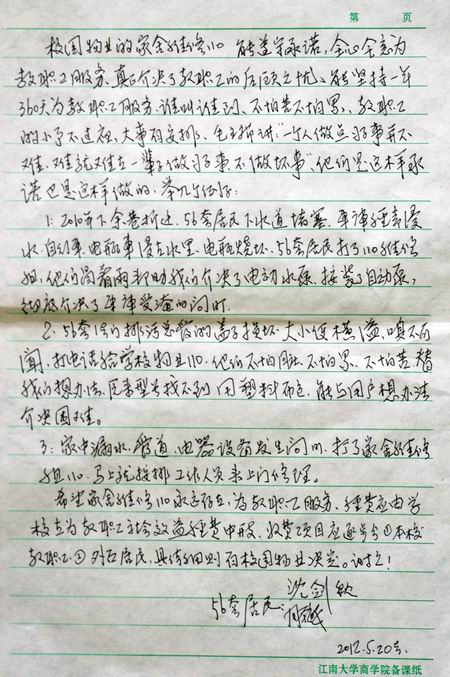 第 页
校园物业的家舍维修110 能遵守承诺,全心全意为
教职工服务、真正介决了教职工的后顾之忧、能坚持一年
360天为教职工服务、谁叫谁到、不怕苦不怕累、教职工
的小事不过夜、大事有安排、毛主席讲:"一个人做点好事并不
难、难就难在一辈子做好事不做坏事"他们是这样承
诺也是这样做的,举几个例子:
1:2010年下余巷拆迁、56套居民下水道堵塞、车库
水、自行车、电瓶车浸在水里、电瓶烧坏、56套居民打了110维修
组,他们冒着雨帮助我们介决了电动水泵、接装了自动泵,
彻底介决了车库受淹的问题
2、56套 排污总管的盖子损坏、大小便横溢、嗅不可
闻、打电话给学校物业110、他们不怕脏、不怕累、不怕苦 替
我们想办法、 型号找不到 用塑料 、能与用户想办法
介决困难。
3:家中漏水、管道、电器设备发生问题、打了家舍维修
组110、马上就接排工作人员来上门修理。
希望家舍维修110永远存在、为教职工服务、经费应由学
校在为教职工 效益经费中开支、收费项目应 ①本校
教职工②外面居民,具体细则有校园物业决定。谢谢!
56套居民: 沈剑

2012.5.20号
江南大学商学院备课纸